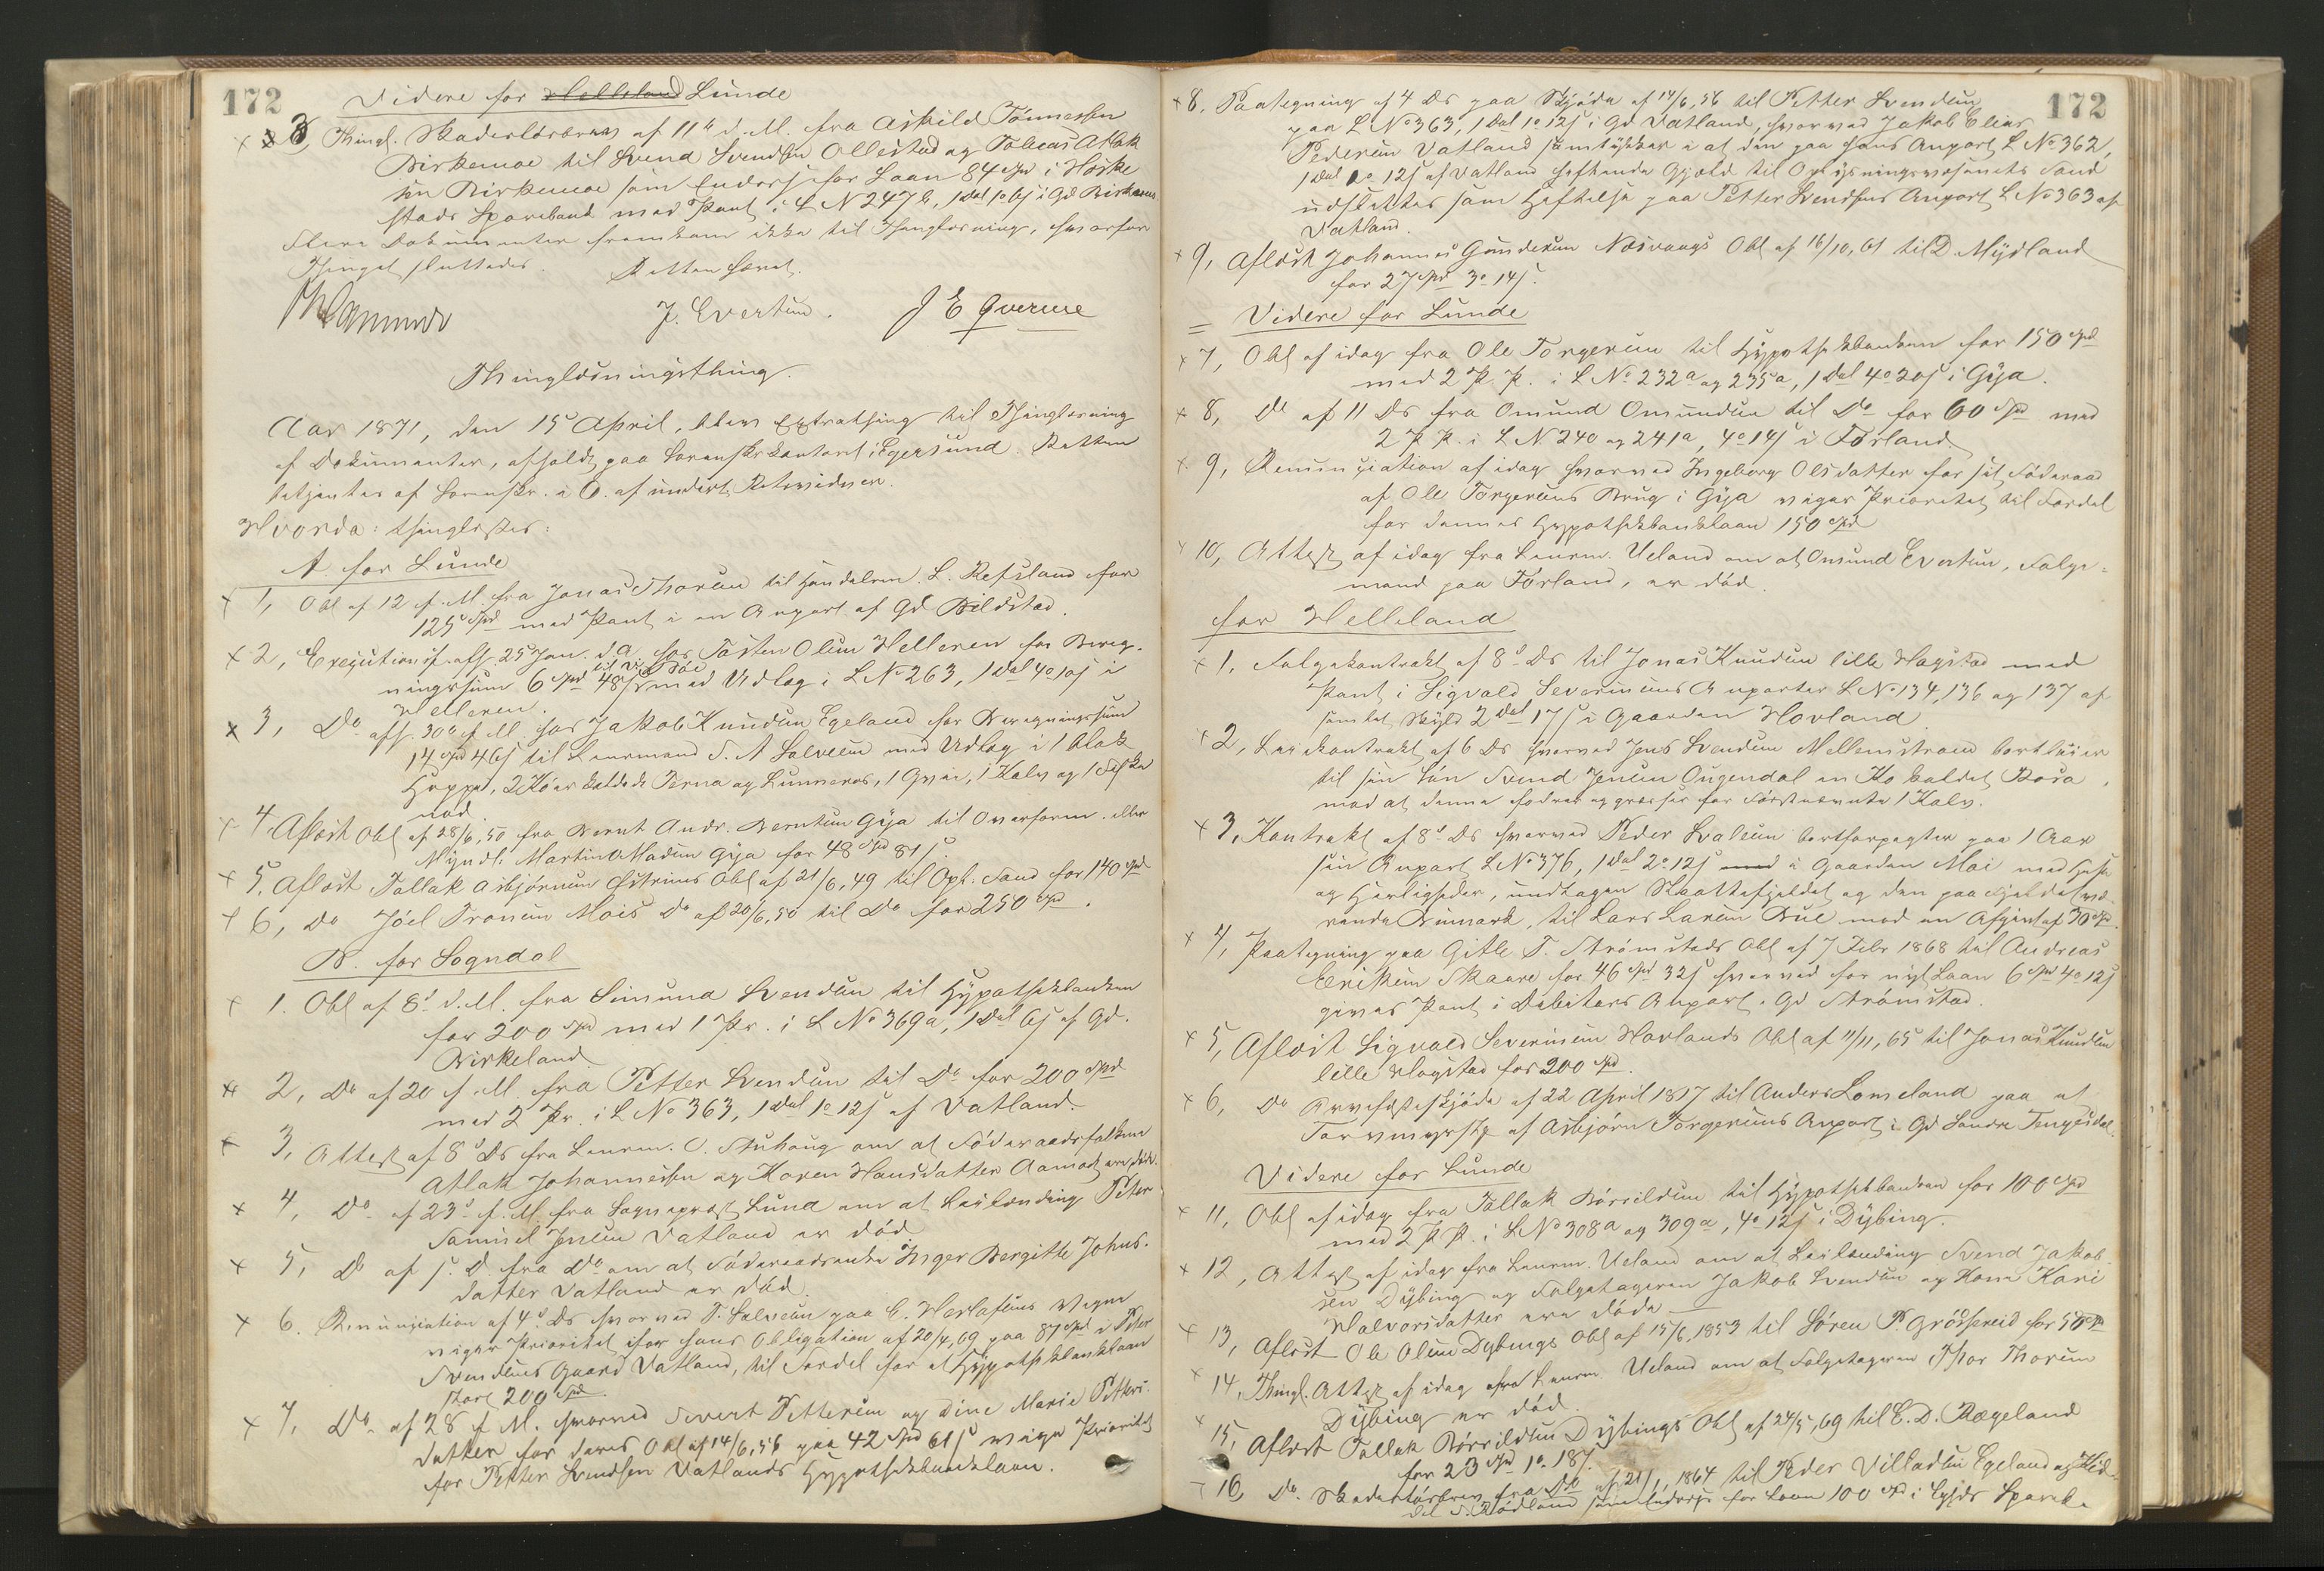 172
Videre for Helleland Lunde
3, Thingl. Skadesløsbrev af 11te d. M. fra Askild Tønnessen
Birkemoe til Svend Svendsen Ollestad og Tobias Atlak
sen Birkemoe som Endoss. for Laan 84 Spd i Heske
stads Sparebank med Pant i L N 247 b, 1 Dal 1 o 6 s i Gd Birkemoe
Flere Dokumenter fremkom ikke til Thinglæsning, hvorfor
Thinget sluttedes. Retten hævet.
J. Evertsen. J E Qverme
Thinglæsningsthing.
Aar 1871, den 15 April, blev Extrathing til Thinglæsning
af Dokumenter, afholdt paa Sorenskr.kontoret i Egersund. Retten
betjentes af Sorenskr. i O. af undert. Retsvidner.
Hvorda: thinglæstes:
A. for Lunde
1, Obl af 12 f. M. fra Jonas Thorsen til Handelsm. L. Refsland for
125 Spd med Pant i en Anpart af Gd Bilstad.
2, Execution aff. 25 Jan. d. A. hos Tosten Olsen Helleren for Bereg-
ningssum 6 Spd 48 s med Udlæg i L No 263, 1 Dal 4 o 10 s i
Helleren.
3, Do aff. 30te f. M. hos Jakob Knudsen Egeland for Beregningssum
14 Spd 46 s til Lensmand S. A. Salvesen med Udlæg i 1 blak
Hoppe, 2 Kjør kaldede Terna og Lunneros, 1 Qvie, 1 Kalv og 1 Fiske
nod.
4 Aflæst Obl af 28/6, 50 fra Bernt Andr. Berntsen Gya til Overform. eller
Myndl. Martin Madsen Gya for 48 Spd 81 s.
5, Aflæst Tallak Asbjørnsen Østrems Obl af 21/6, 49 til Opl. Fond for 140 Spd
6, Do Joel Tronsen Mois Do af 20/6, 50 til Do for 250 Spd.
B. for Sogndal
1. Obl af 8d d. M. fra Simund Svendsen til Hypothekbanken
for 200 Spd med 1 Pr. i L No 369 a, 1 Dal 6 s af Gd.
Birkeland
2, Do af 20 f. M. fra Petter Svendsen til Do for 200 Spd
med 2 Pr. i L No 363, 1 Dal 1 o 12 s af Vatland.
3, Attest af 8d Ds fra Lensm. O. Stuhaug om at Føderaadsfolkene
Atlak Johannessen og Karen Hansdatter Aamodt ere døde.
4, Do af 23d f. M. fra Sogneprest Lund om at Leilænding Peter
Samuel Jensen Vatland er død.
5, Do af s. D. fra Do om at Føderaadsenke Inger Bergitte Johns-
datter Vatland er død.
6. Renunciation af 4d Ds hvorved T. Salvesen paa E. Herlofsens Vegne
viger Prioritet ifør hans Obligation af 20/4, 69 paa 87 Spd i Peter
Svendsens Gaard Vatland, til Fordel for et Hypothekbanklaan
stort 200 Spd.
7, Do af 28 f M. hvorved Sivert Pettersen og Dine Marie Petters-
datter for deres Obl af 14/6, 56 paa 42 Spd 61 s viger Prioritet
for Petter Svendsen Vatlands Hypothekbanklaan.
172
8. Paategning af 4 Ds paa Skjøde af 14/6, 56 til Petter Svendsen
paa L No 363, 1 Dal 1 o 12 s i Gd Vatland, hvorved Jakob Elias
Pedersen Vatland samtykker i at den paa hans Anpart L No 362,
1 Dal 1 o 12 s af Vatland heftende Gjæld til Oplysningsvæsenets Fond
udslettes som Heftelse paa Petter Svendsens Anpart L No 363 af
Vatland.
9, Aflæst Johannes Gundersen Næsvaags Obl af 16/10, 61 til D. Mydland
for 27 Spd 3 o 14 s.
Videre for Lunde
7, Obl af idag fra Ole Torgersen til Hypothekbanken for 150 Spd
med 2 P. P. i L No 232 a og 235 a, 1 Dal 4 o 20 s i Gya.
8, Do af 11 Ds fra Omund Omundsen til Do for 60 Spd med
2 P P. i L N 240 og 241 a, 4 o 14 s i Førland
9, Renunciation af idag hvorved Ingeborg Olsdatter for sit Føderaad
af Ole Torgersens Brug i Gya viger Prioritet til Fordel
for dennes Hypothekbanklaan 150 Spd
10, Attest af idag fra Lensm. Ueland om at Omund Evertsen, Folge-
mand paa Førland, er død.
for Helleland
1. Folgekontrakt af 8d Ds til Jonas Knudsen lille Hogstad med
Pant i Sigvald Severinsens Anparter L No 134, 136 og 137 af
samlet Skyld 2 Dal 17 s i Gaarden Hovland.
2, Leiekontrakt af 6 Ds hvorved Jens Svendsen Mellemstrand bortleier
til sin Søn Svend Jensen Ougendal en Ko kaldet Rosa,
mod at denne fodrer og græsser for Førstnævnte 1 Kalv.
3, Kontrakt af 8d Ds hvorved Peder Svalesen bortforpagter paa 1 Aar
sin Anpart L No 376, 1 Dal 2 o 12 s i Gaarden Moi med Huse
og Herligheder, undtagen Skaattefjeldet og den paa Fjeldet væ-
rende Bumark, til Lars Larsen Bue mod en Afgivt af 30 Spd.
4, Paategning paa Gitle T. Strømstads Obl af 7 Febr 1868 til Andreas
Eriksen Skaare for 46 Spd 32 s hvorved for nyt Laan 6 Spd 4 o 12 s
gives Pant i Debitors Anpart i Gd Strømstad.
5, Aflæst Sigvald Severinsen Hovlands Obl af 11/11, 65 til Jonas Knudsen
lille Hogstad for 200 Spd.
6, Do Arvefæsteskjøde af 22 April 1817 til Anders Lomeland paa et
Torvmyrstk af Asbjørn Torgersens Anpart i Gd Søndre Tengesdal.
Videre for Lunde
11, Obl af idag fra Tallak Børrildsen til Hypothekbanken for 100 Spd
med 2 P P. i L No 308 a og 309 a, 4 o 12 s i Dybing.
12, Attest af idag fra Lensm. Ueland om at Leilænding Svend Jakob-
sen Dybing og Folgetageren Jakob Svendsen og Kone Kari
Halvorsdatter ere døde.
13, Aflæst Ole Olsen Dybings Obl af 15/6 1853 til Søren P. Grøsfreid for 50 Spd
14, Thingl. Attest af idag fra Lensm Ueland om at Folgetageren Thor Thorsen
Dybing er død.
15, Aflæst Tallak Børrildsen Dybings Obl af 24/5, 69 til E. D. Rægeland
for 23 Spd 1 o 18 s.
16 Do. Skadesløsbrev fra Do af 21/1 1864 til Peder Villadsen Egeland og
som Endoss for Laan 100 Spd i Sparek.